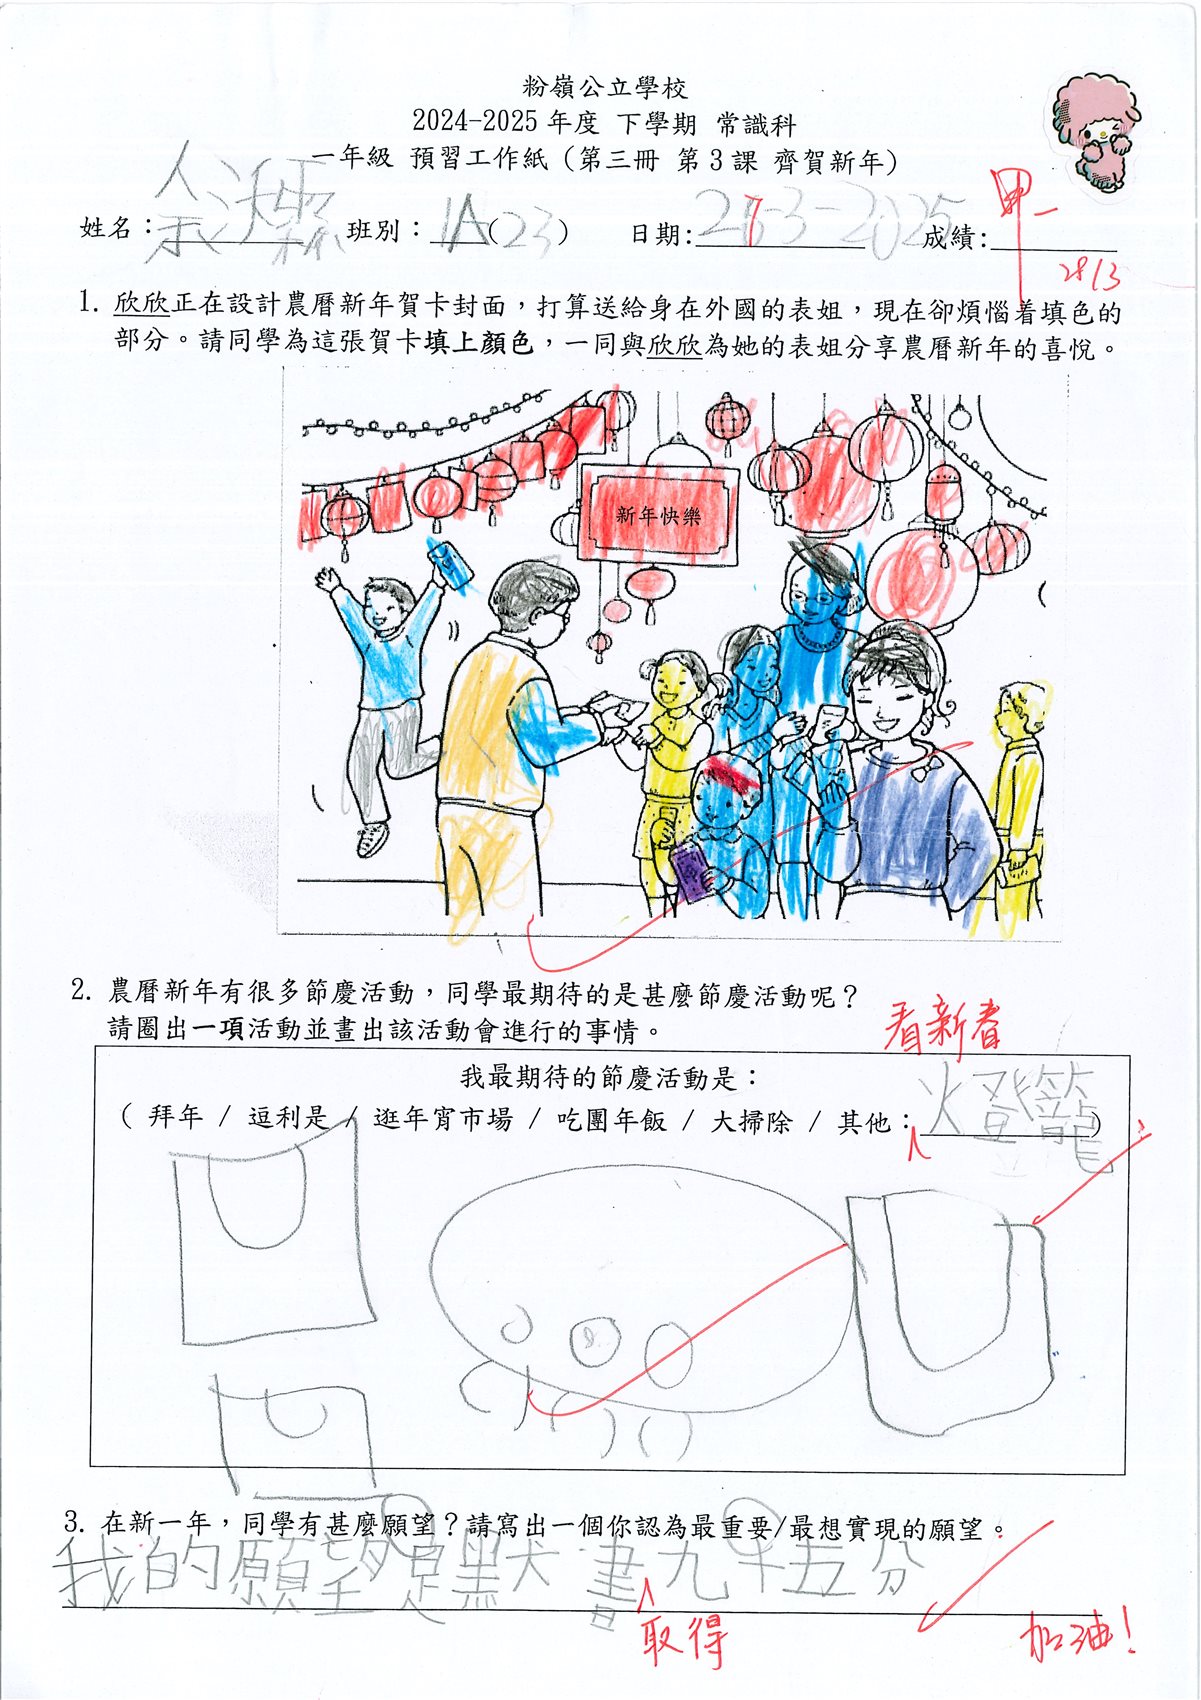 粉嶺公立學校
2024-2025 年度 下學期 常識科
一年級 預習工作紙 (第三冊 第 3 課 齊賀新年)
姓名： 班別：1A(23) 日期:27-3-2025 成績:甲一
28/3
1. 欣欣正在設計農曆新年賀卡封面，打算送給身在外國的表姐，現在卻煩惱着填色的
部分。請同學為這張賀卡填上顏色，一同與欣欣為她的表姐分享農曆新年的喜悅。
新年快樂
2. 農曆新年有很多節慶活動，同學最期待的是甚麼節慶活動呢？
請圈出一項活動並畫出該活動會進行的事情。
看新春
我最期待的節慶活動是：
( 拜年 / 逗利是 / 逛年宵市場 / 吃團年飯 / 大掃除 / 其他：燈籠)
3. 在新一年，同學有甚麼願望？請寫出一個你認為最重要/最想實現的願望。
我的願望是默書九十五分
取得
加油！